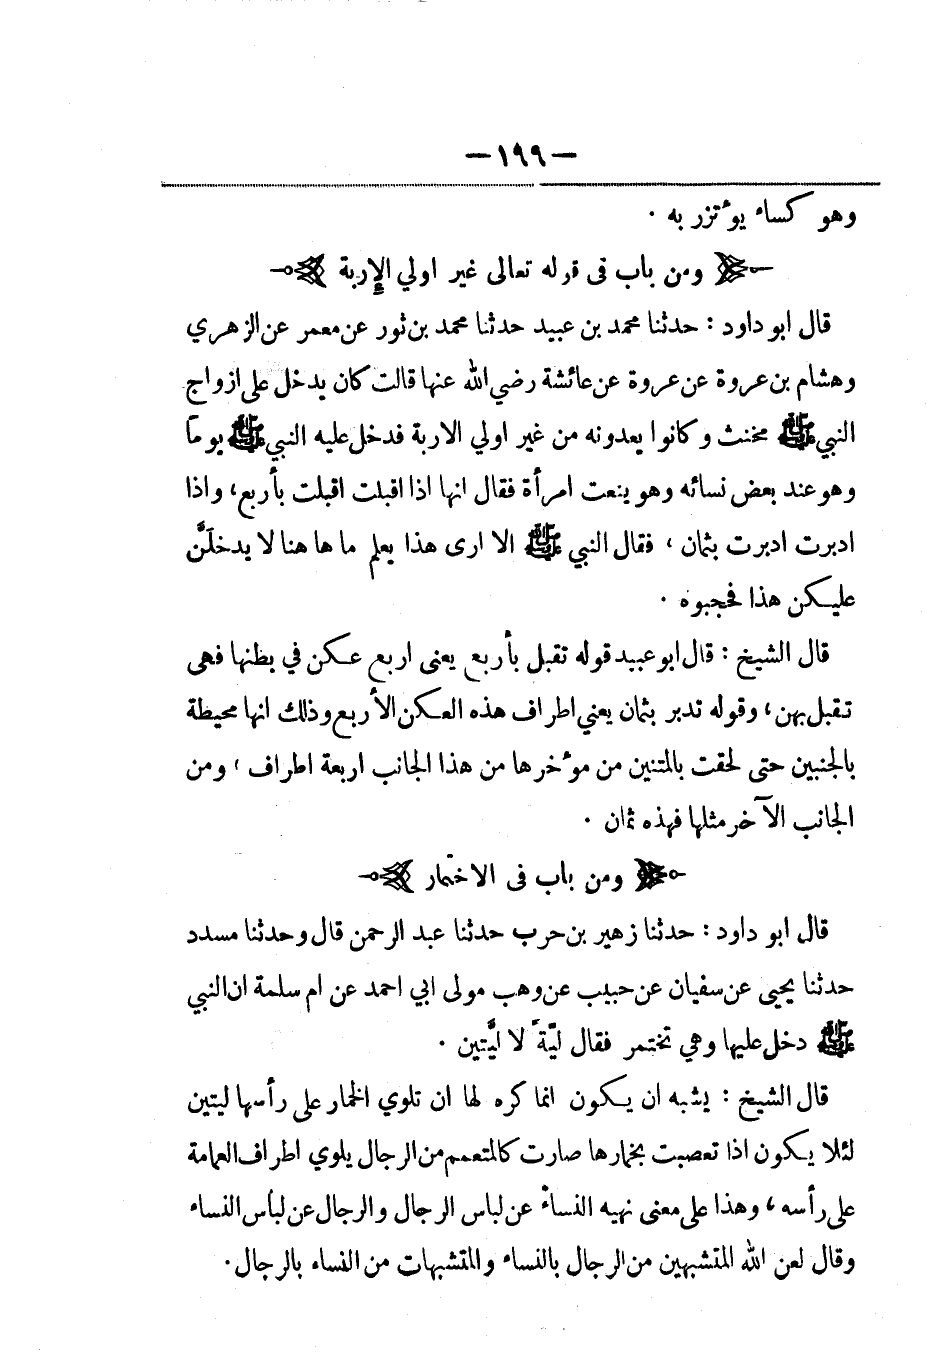 — ١٩٩ —
وهو كساء يؤتزر به .
ومن باب فى قوله تعالى غير اولي الإربة
قال ابو داود : حدثنا محمد بن عبيد حدثنا محمد بن ثور عن معمر عن الزهري
وهشام بن عروة عن عروة عن عائشة رضي الله عنها قالت كان يدخل على ازواج
النبي ﷺ مخنث وكانوا يعدونه من غير اولي الاربة فدخل عليه النبي ﷺ يوماً
وهو عند بعض نسائه وهو ينعت امرأة فقال انها اذا اقبلت اقبلت بأربع، واذا
ادبرت ادبرت بثمان ، فقال النبي ﷺ الا ارى هذا يعلم ما ها هنا لا يدخلَنَّ
عليكن هذا فحجبوه .
قال الشيخ : قال ابو عبيد قوله تقبل بأربع يعنى اربع عكن في بطنها فهى
تقبل بهن، وقوله تدبر بثمان يعني اطراف هذه العكن الأربع وذلك انها محيطة
بالجنبين حتى لحقت بالمتنين من مؤخرها من هذا الجانب اربعة اطراف ، ومن
الجانب الآخر مثلها فهذه ثمان .
ومن باب فى الاختمار
قال ابو داود : حدثنا زهير بن حرب حدثنا عبد الرحمن قال وحدثنا مسدد
حدثنا يحيى عن سفيان عن حبيب عن وهب مولى ابي احمد عن ام سلمة ان النبي
ﷺ دخل عليها وهي تختمر فقال ليّةً لا ليَّتين .
قال الشيخ : يشبه ان يكون انما كره لها ان تلوي الخمار على رأسها ليتين
لئلا يكون اذا تعصبت بخمارها صارت كالمتعمم من الرجال يلوي اطراف العمامة
على رأسه ، وهذا على معنى نهيه النساء عن لباس الرجال والرجال عن لباس النساء
وقال لعن الله المتشبهين من الرجال بالنساء والمتشبهات من النساء بالرجال.